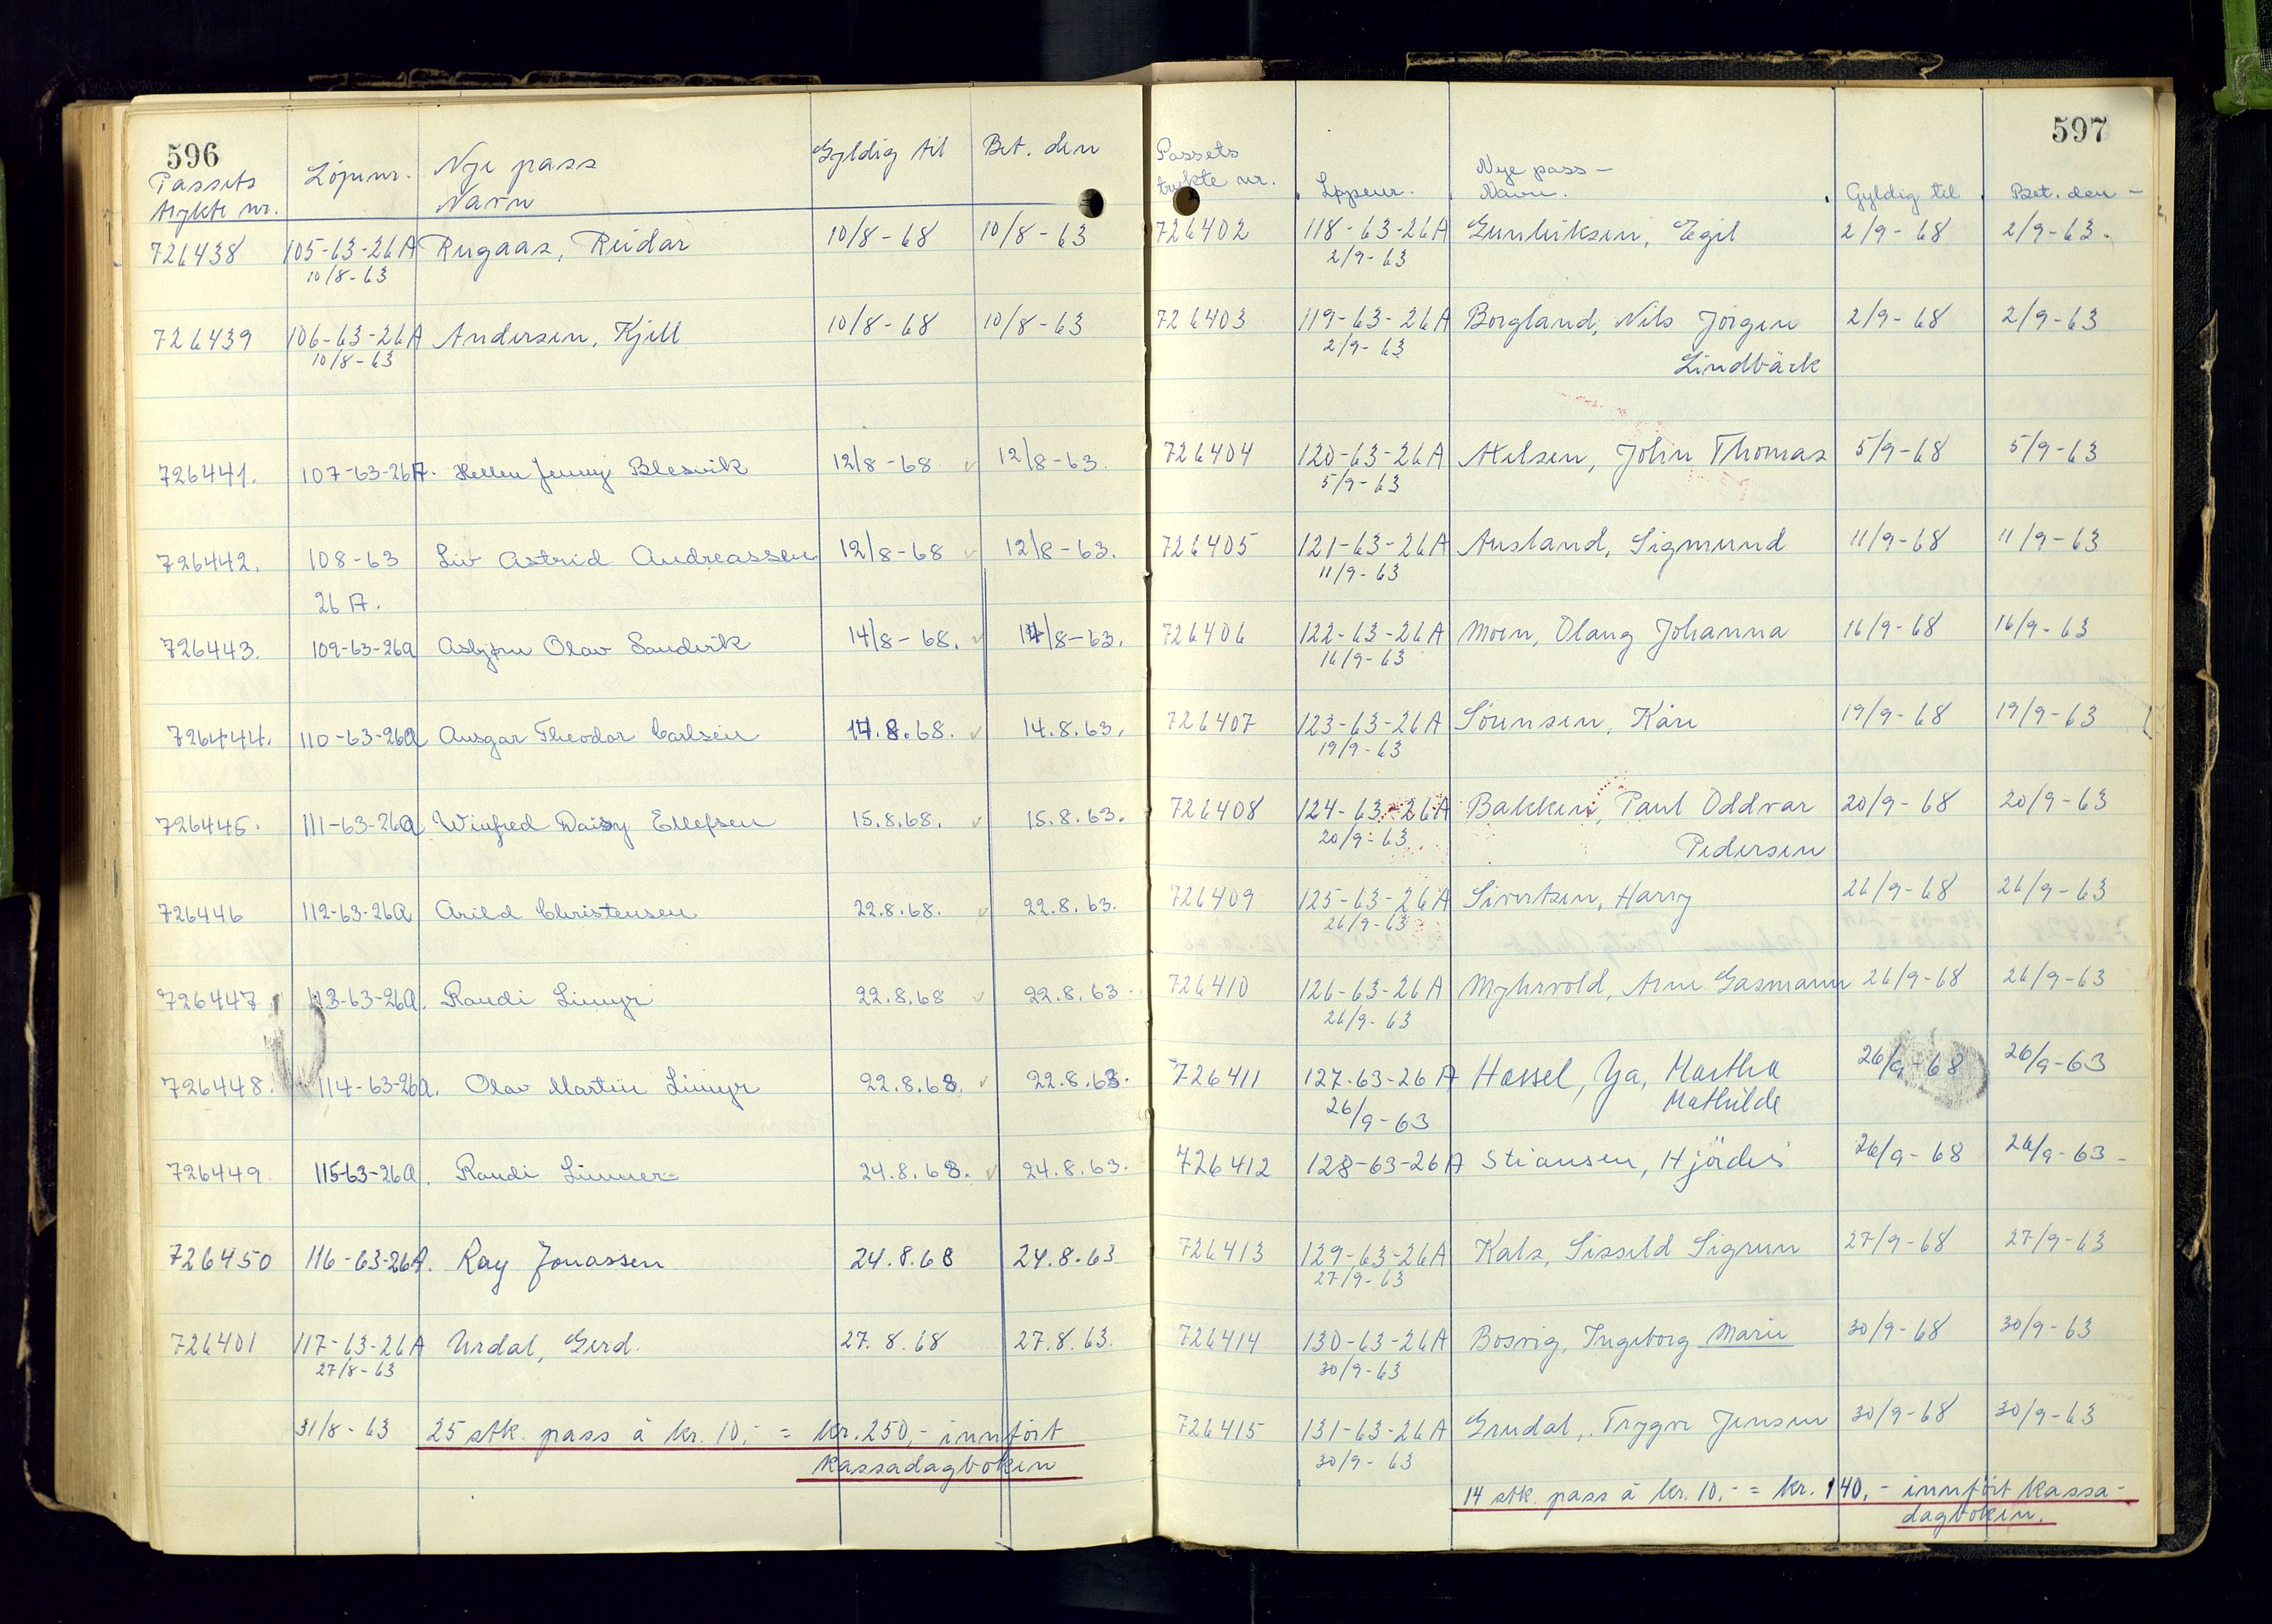 596
Passets trykte nr. Löpenr. Nye pass Navn Gyldig til Bet. den
726438 105-63-26A Rugaas, Reidar 10/8-68 10/8-63
10/8-63
726439 106-63-26A Andersen, Kjell 10/8-68 10/8-63
10/8-63
726441. 107-63-26A. Hellen Jenny Blesvik 12/8-68 12/8-63.
726442. 108-63 Liv Astrid Andreassen 12/8-68 12/8-63.
26A.
726443. 109-63-26a Asbjørn Olav Sandvik 14/8-68. 14/8-63.
726444. 110-63-26a Ansgar Theodor Carlsen 14.8.68. 14.8.63.
726445. 111-63-26a Winfred Daisy Ellefsen 15.8.68. 15.8.63.
726446 112-63-26a Arild Christensen 22.8.68. 22.8.63.
726447 113-63-26a. Randi Limyr 22.8.68 22.8.63
726448. 114-63-26a. Olav Martin Limyr 22.8.68. 22.8.63.
726449. 115-63-26a. Randi 24.8.68. 24.8.63.
726450 116-63-26A. Ray Jonassen 24.8.68 24.8.63
726401 117-63-26A Urdal, Gerd. 27.8.68 27.8.63.
27/8-63
31/8-63 25 stk. pass à kr. 10,- = kr. 250,- innført
kassadagboken
597
Passets trykte nr. Løpenr. Nye pass - Navn. Gyldig til Bet. den -
726402 118-63-26A Gunleiksen, Egil 2/9-68 2/9-63.
2/9-63
726403 119-63-26A Borgland, Nils Jörgen 2/9-68 2/9-63
2/9-63 Lindbäck
726404 120-63-26A Axelsen, John Thomas 5/9-68 5/9-63
5/9-63
726405 121-63-26A Ausland, Sigmund 11/9-68 11/9-63
11/9-63
726406 122-63-26A Moen, Olaug Johanna 16/9-68 16/9-63
16/9-63
726407 123-63-26A Sörensen, Kåre 19/9-68 19/9-63
19/9-63
726408 124-63-26A Bakken, Paul Oddvar 20/9-68 20/9-63
20/9-63 Pedersen
726409 125-63-26A Sivertsen, Harry 26/9-68 26/9-63
26/9-63
726410 126-63-26A Myhrvold, Arne Gasmann 26/9-68 26/9-63
26/9-63
726411 127-63-26A Hassel, Ya, Martha 26/9-68 26/9-63
26/9-63 Mathilde
726412 128-63-26A Stiansen, Hjördis 26/9-68 26/9-63 -
726413 129-63-26A Kals, Sissild Sigrun 27/9-68 27/9-63
27/9-63
726414 130-63-26A Bosvig, Ingeborg Marie 30/9-68 30/9-63
30/9-63
726415 131-63-26A Grudal, Trygve Jensen 30/9-68 30/9-63
30/9-63
14 stk. pass à kr. 10,- = kr. 140,- innført kassa-
dagboken.